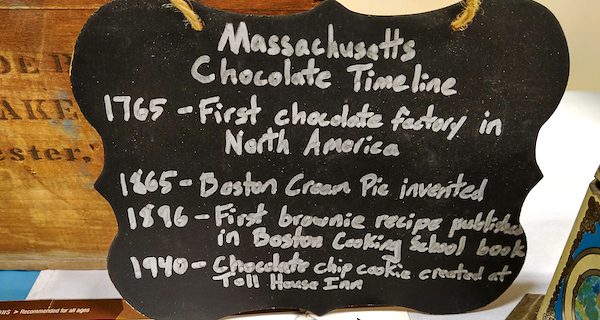 Massachusetts
Chocolate Timeline
1765 - First chocolate factory in
North America
1865 - Boston Cream Pie invented
1896 - First brownie recipe publishe
in Boston Cooking School book
1940 - Chocolate chip cookie created at
Toll House Inn
AKE
ester,
NS • Recommended for all ages